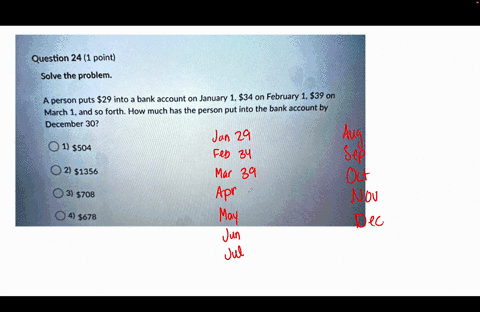 Question 24 (1 point)
Solve the problem.
A person puts $29 into a bank account on January 1, $34 on February 1, $39 on
March 1, and so forth. How much has the person put into the bank account by
December 30?
1) $504
2) $1356
3) $708
4) $678
Jan 29
Feb 34
Mar 39
Apr
May
Jun
Jul
Aug
Sep
Oct
Nov
Dec